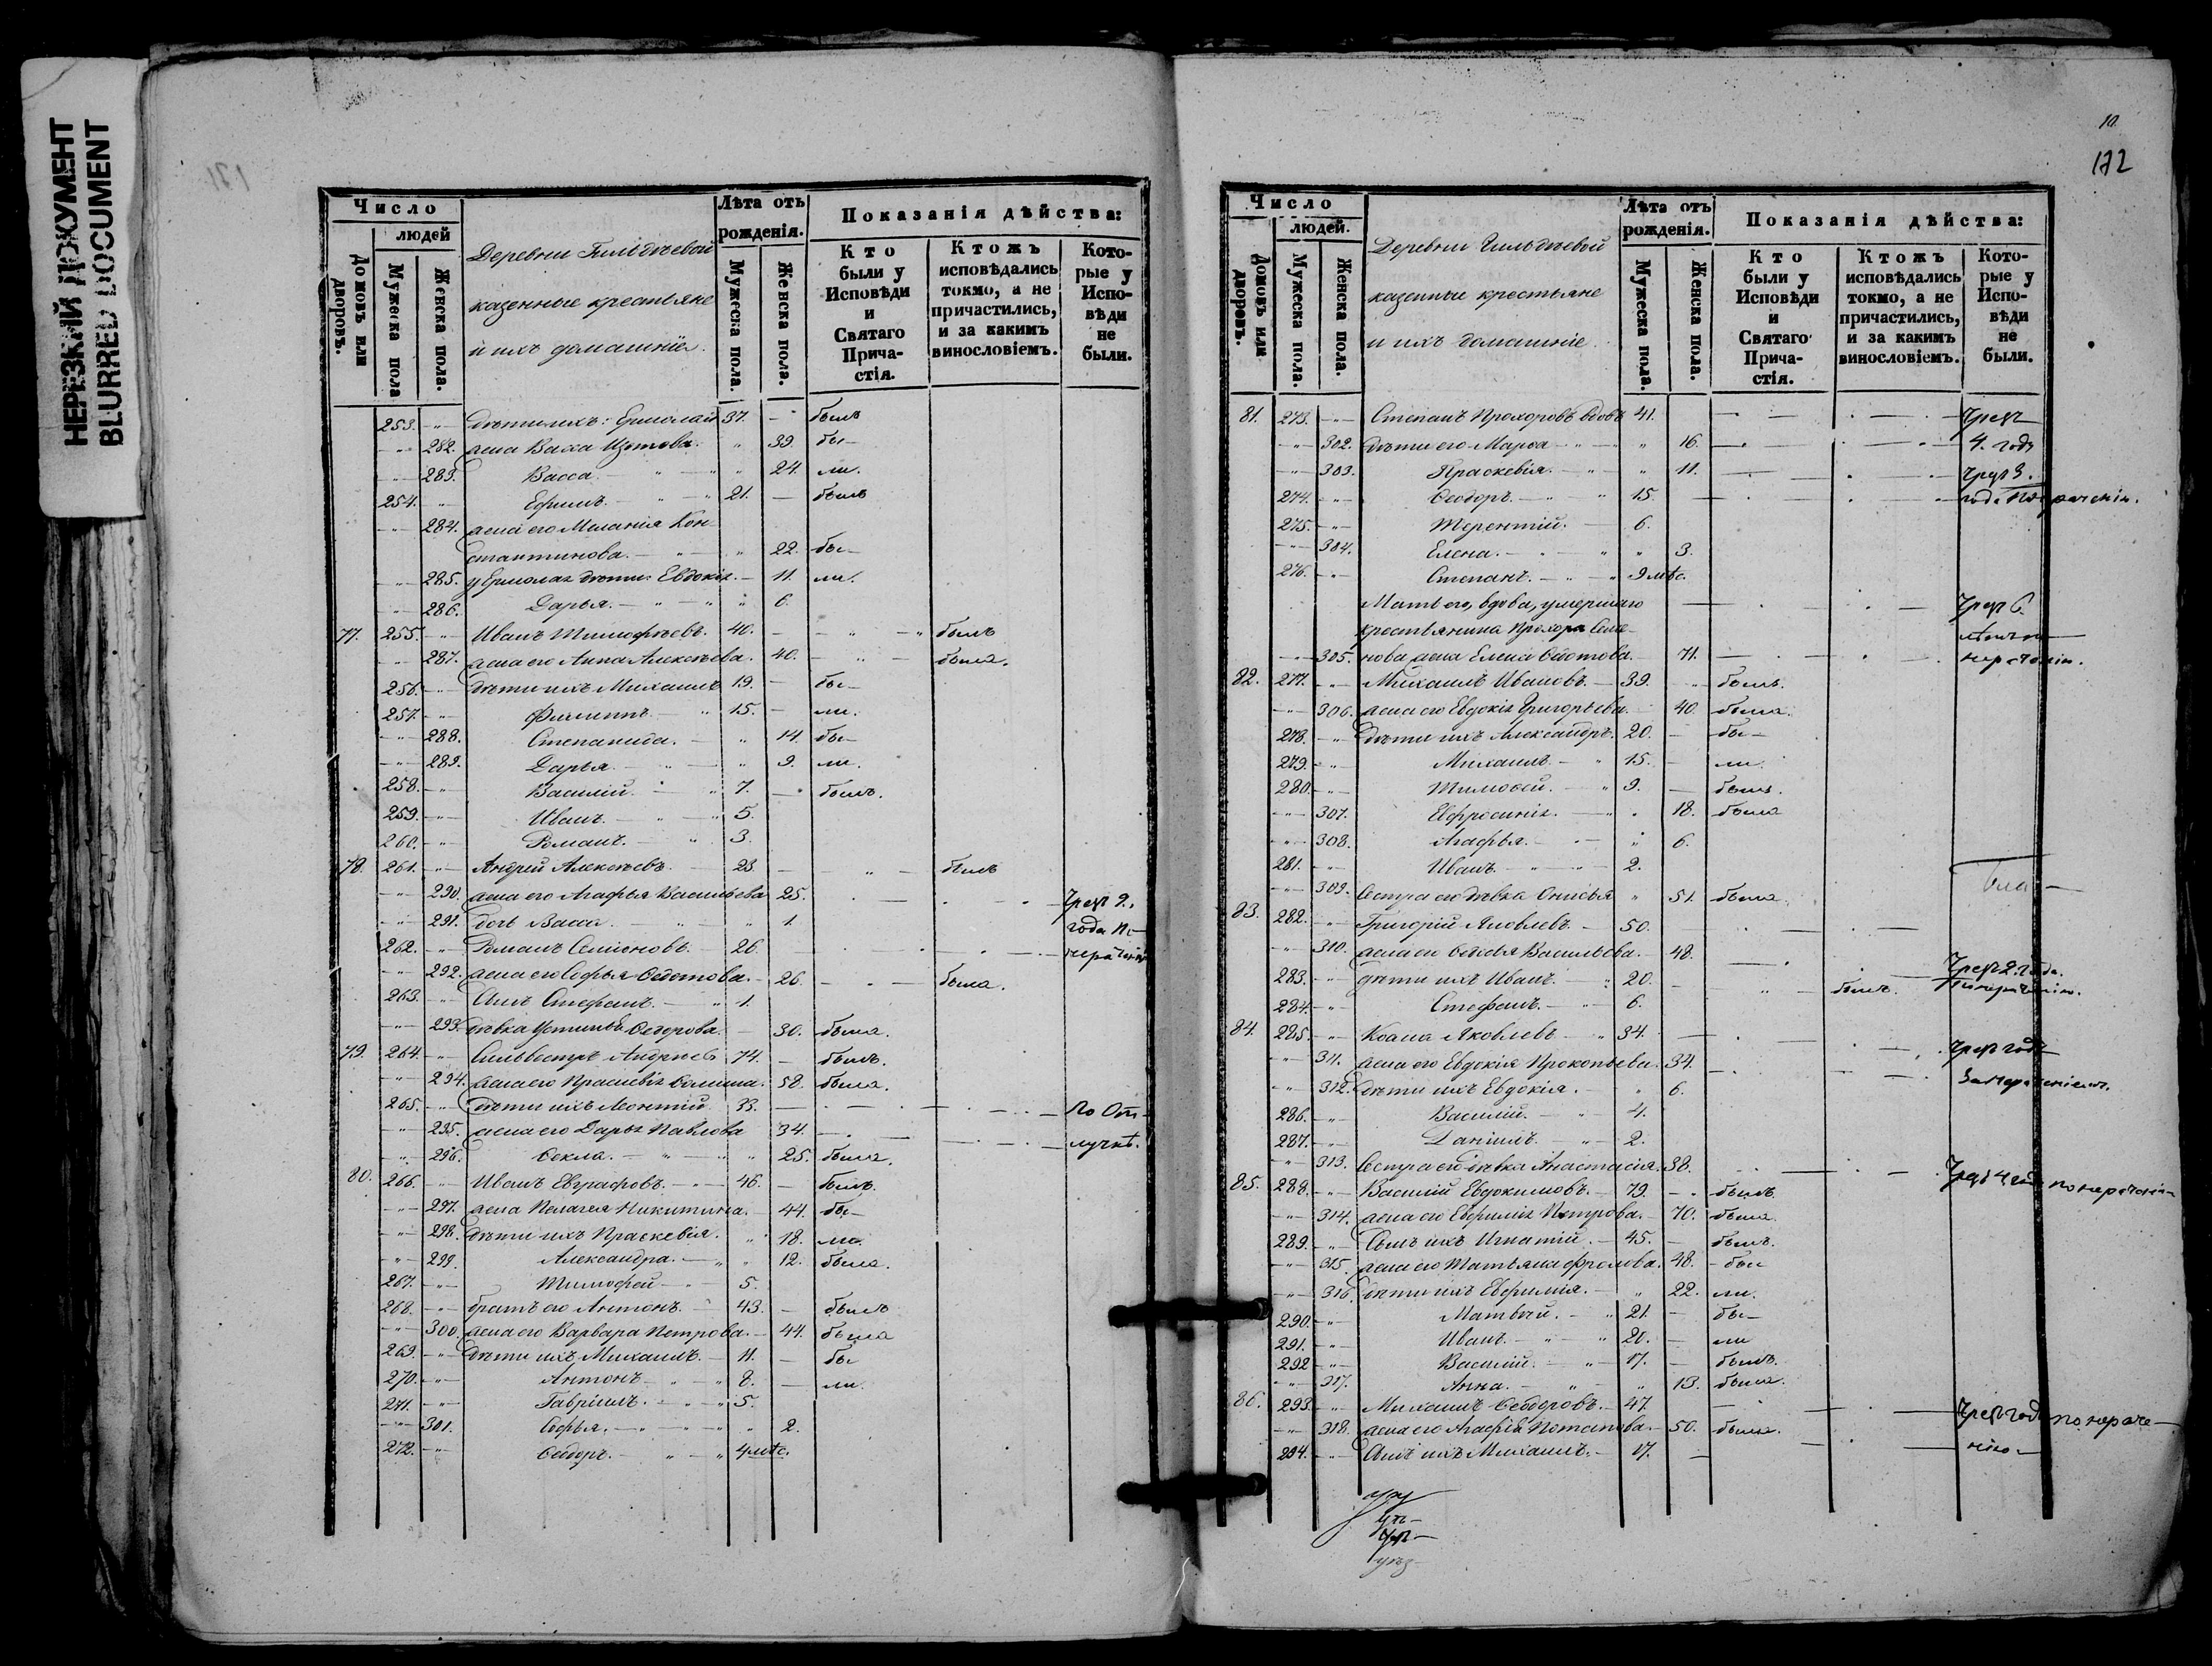 НЕРЕЗКИЙ ДОКУМЕНТ
BLURRED DOCUMENT
171
Число
людей
Домовъ или дворовъ.
Мужеска пола
Женска пола.
Деревни
казенные крестьяне
и ихъ домашніе.
Лѣта отъ рожденія.
Мужеска пола.
Женска пола.
Показанія дѣйства:
Кто были у Исповѣди и Святаго Прича-стія.
Ктожъ исповѣдались токмо, а не причастились, и за какимъ винословіемъ.
Кото-рые у Испо-вѣди не были.
253. дѣти ихъ: Ермолай 37. былъ
282. жена 39. бы-
283. Васса 24. ли.
254. Ефимъ. 21. былъ
284. жена его Меланія Кон-
стантинова. 22. бы-
285. у Ермолая дѣти: Евдокія. 11. ли.
286. Дарья. 6.
77. 255. Иванъ Тимофѣевъ. 40. былъ
287. жена его Анна Алексѣева. 40. была.
256. дѣти ихъ Михаилъ 19. бы-
257. Филиппъ. 15. ли.
288. Степанида. 14. бы-
289. Дарья. 9. ли.
258. Василій. 7. былъ.
259. Иванъ. 5.
260. Романъ. 3.
78. 261. Андрей Алексѣевъ. 23. былъ
290. жена его Агафья Васильева 25. Чрезъ 2.
291. дочь Васса. 1. года по
262. Романъ Семіоновъ. 26. нераченію
292. жена его Софья Ѳедотова. 26. была.
263. Сынъ Стефанъ. 1.
293. дѣвка Устинья Ѳедорова. 30. была.
79. 264. Сильвестръ Андреевъ 74. былъ.
294. жена его Праскевія Ѳомина. 58. была.
265. дѣти ихъ Леонтій 33. По От-
295. жена его Дарья Павлова 34. лучкѣ.
296. Ѳекла. 25. была.
80. 266. Иванъ Евграфовъ. 46. былъ.
297. жена Пелагея Никитина. 44. бы-
298. дѣти ихъ Праскевія. 18. ли.
299. Александра. 12. была.
267. Тимофей 5.
268. братъ его Антонъ. 43. былъ
300. жена его Варвара Петрова. 44. была
269. дѣти ихъ Михаилъ. 11. бы-
270. Антонъ 8. ли.
271. Гавріилъ. 5.
301. Софья. 2.
272. Ѳеодоръ. 4 мѣс.
10
172
Число
людей.
Домовъ или дворовъ.
Мужеска пола.
Женска пола.
Деревни
казенные крестьяне
и ихъ домашніе.
Лѣта отъ рожденія.
Мужеска пола.
Женска пола.
Показанія дѣйства:
Кто были у Исповѣди и Святаго Прича-стія.
Ктожъ исповѣдались токмо, а не причастились, и за какимъ винословіемъ.
Кото-рые у Испо-вѣди не были.
81. 273. Степанъ Прохоровъ вдовъ 41. Чрезъ
302. дѣти его Марѳа 16. 4. года
303. Праскевія. 11. Чрезъ 3.
274. Ѳеодоръ. 15. года по нераченію.
275. Терентій. 6.
304. Елена. 3.
276. Степанъ. 9 мѣс.
Мать его, вдова, умершаго Чрезъ 6.
крестьянина Прохора Семе-
305. нова жена Елена Ѳедотова. 71. нераченію.
82. 277. Михаилъ Ивановъ. 39. былъ.
306. жена его Евдокія Григорьева. 40. была.
278. дѣти ихъ Александръ. 20. бы-
279. Михаилъ. 15. ли.
280. Тимоѳей. 9. былъ.
307. Евфросинія. 18. была
308. Агафья. 6.
281. Иванъ. 2.
309. Сестра его дѣвка Онисья 51. была.
83. 282. Григорій Яковлевъ. 50.
310. жена его Васильева. 48. Чрезъ 2. года.
283. дѣти ихъ Иванъ. 20. былъ. По нераченію.
284. Стефанъ. 6.
84. 285. Козма Яковлевъ 34. Чрезъ годъ
311. жена его Евдокія Прокопьева. 34. За нераченіемъ.
312. дѣти ихъ Евдокія. 6.
286. Василій. 4.
287. Даніилъ. 2.
313. Сестра его дѣвка Анастасія. 38. Чрезъ 4 года по нераченію
85. 288. Василій Евдокимовъ. 79. былъ.
314. жена его Евфимія Петрова. 70. была.
289. Сынъ ихъ Игнатій. 45. былъ.
315. жена его Татьяна Фролова. 48. бы-
316. дѣти ихъ Евфимія. 22. ли.
290. Матвѣй. 21. бы-
291. Иванъ. 20. ли
292 Василій. 17. былъ.
317. Анна. 13. была.
86. 293. Михаилъ Ѳеодоровъ. 47. Чрезъ годъ по нераче-
318. жена его Агафія Потапова. 50. была. нію
294. Сынъ ихъ Михаилъ. 17.